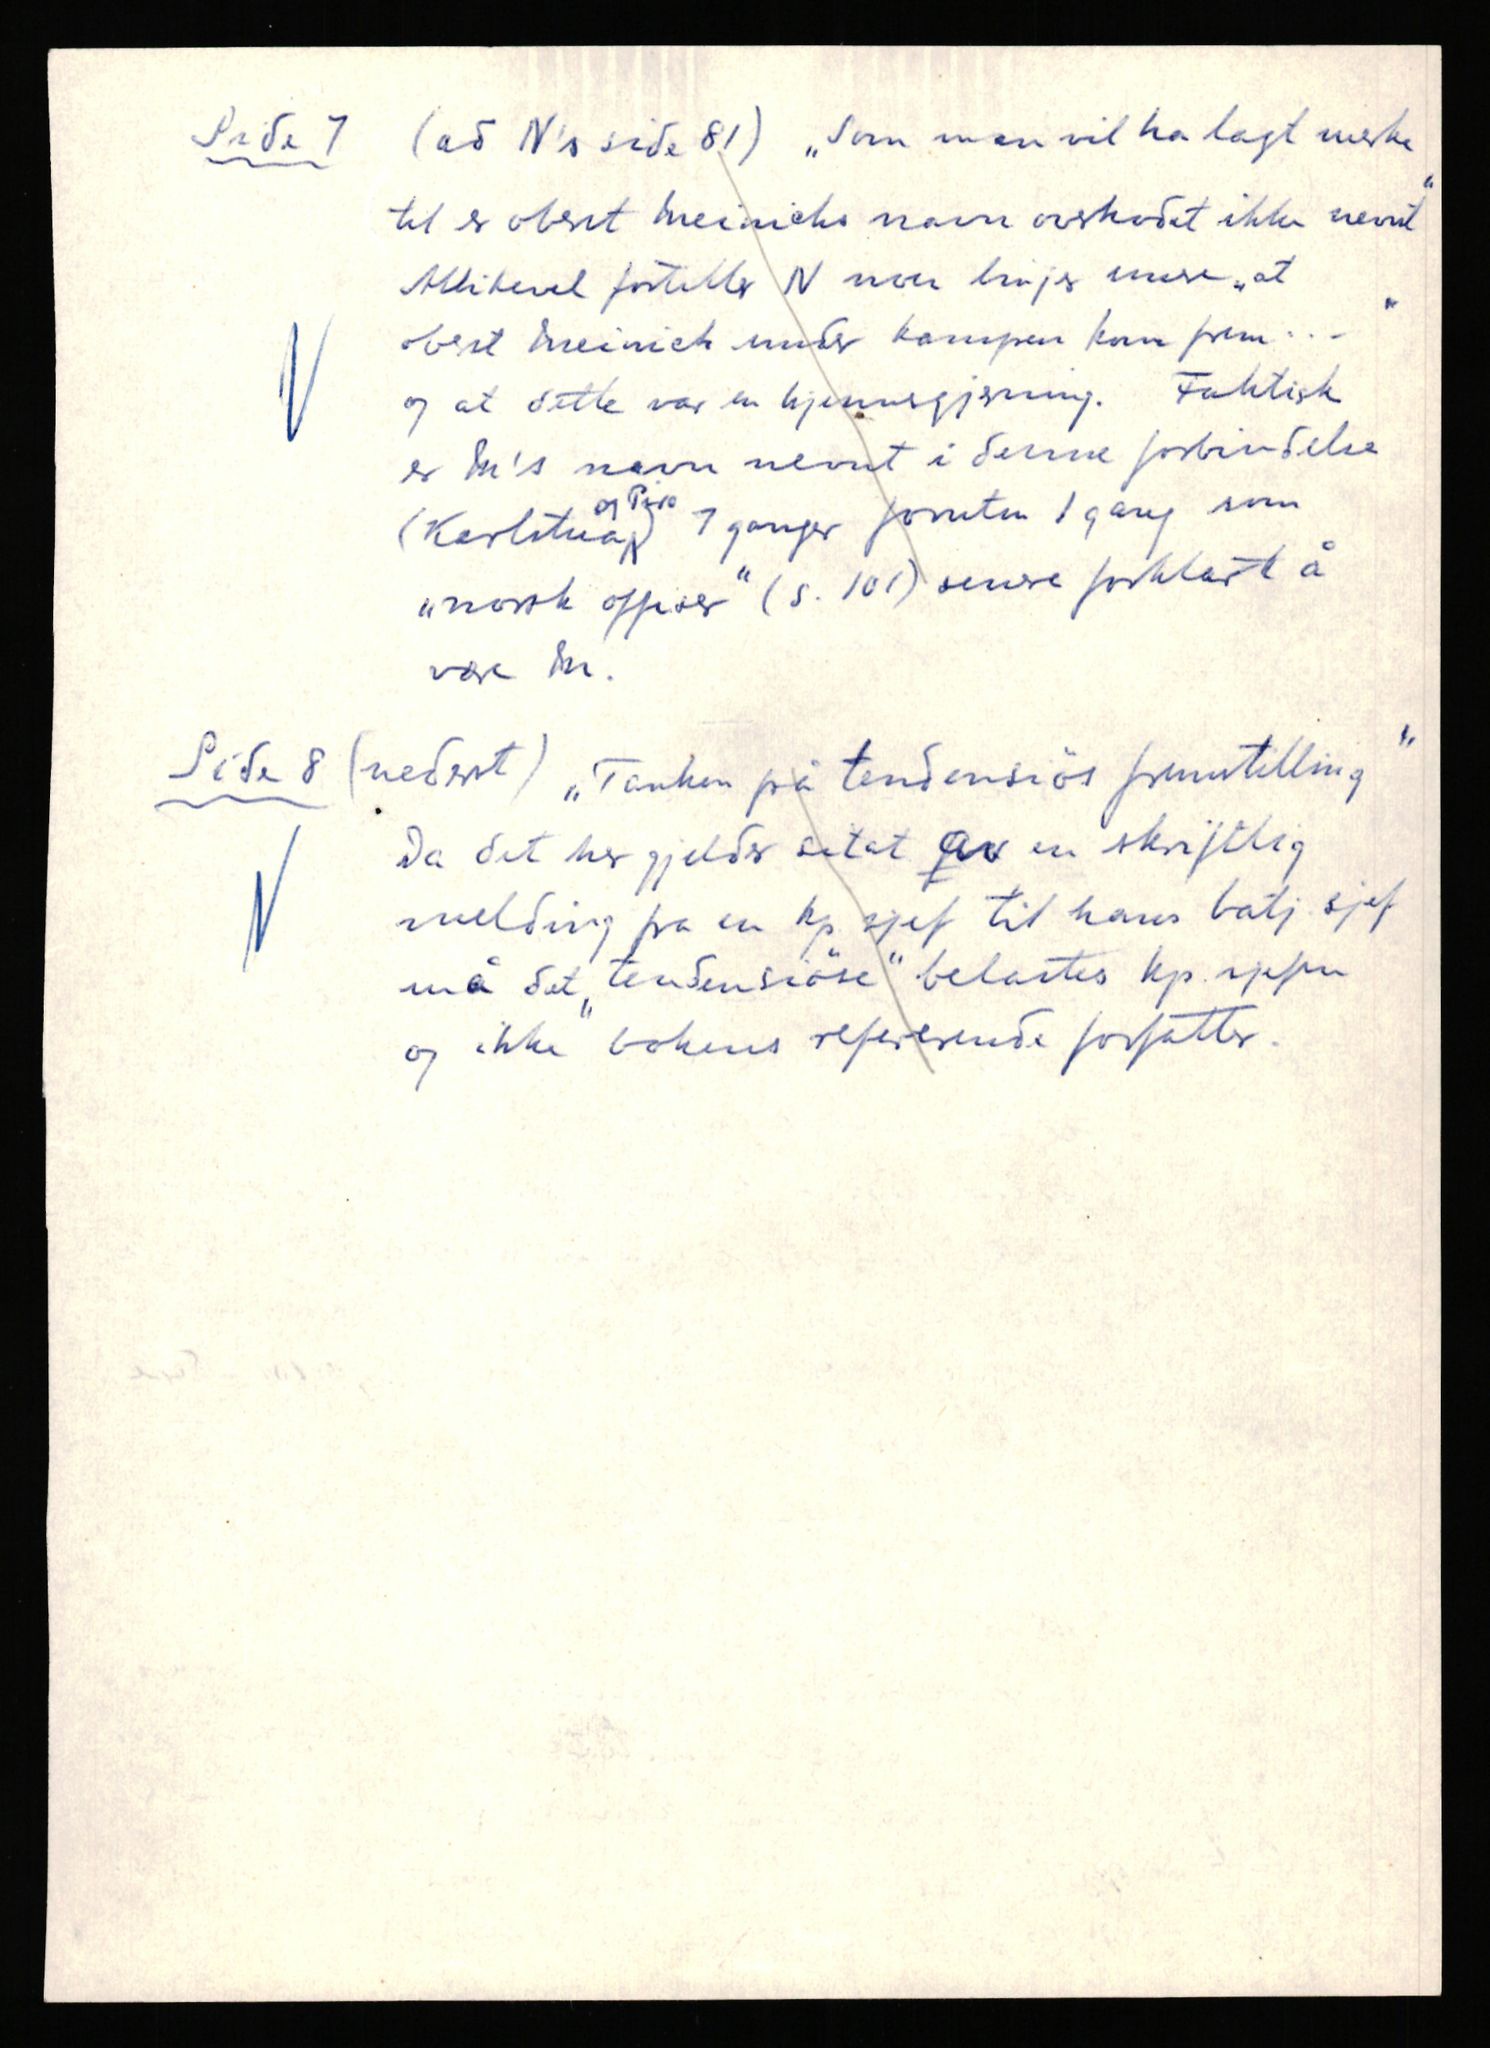 Side 7 (ad N's side 81) „Som man vil ha lagt merke
til er oberst Meinichs navn overhodet ikke nevnt"
Allikevel forteller N noen linjer mere „at
oberst Meinich under kampen kom frem..."
og at dette var en hjemmegjerning. Faktisk
er M's navn nevnt i denne forbindelse
(Karlstua og) 7 ganger foruten 1 gang som
„norsk offiser" (s. 101) senere forklart å
være M.
Side 8 (nederst) „Tanken på tendensiös fremstilling"
Da det her gjelder sitat av en skriftlig
melding fra en kp. sjef til hans batj. sjef
må det „tendensiöse" belastes kp. sjefen
og ikke bokens refererende forfatter.